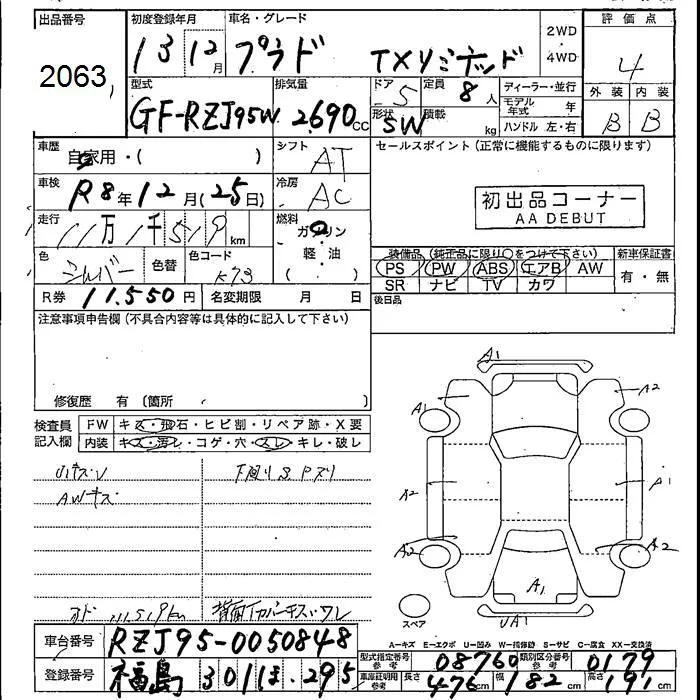 出品番号 初度登録年月 車名・グレード 2WD・4WD 評価点
2063 13 12月 プラド TXリミテッド 4
型式 排気量 ドア 定員 ディーラー・並行 外装 内装
GF-RZJ95W 2690cc 5 8人 モデル年式 年 B B
形状 SW 積載 kg ハンドル 左・右
車歴 自家用・( ) シフト AT セールスポイント(正常に機能するものに限ります)
車検 R8年12月(25日) 冷房 AC 初出品コーナー
AA DEBUT
走行 11万1千519km 燃料 ガソリン・軽・油・( )
色 シルバー 色替 色コード K73
装備品(純正品に限り○をつけて下さい) 新車保証書
PS PW ABS エアB AW 有・無
SR ナビ TV カワ
R券 11,550円 名変期限 月 日 後日品
注意事項申告欄(不具合内容等は具体的に記入して下さい)
修復歴 有(箇所 )
検査員記入欄 FW キズ・飛石・ヒビ割・リペア跡・X要
内装 キズ・汚レ・コゲ・穴・スレ・キレ・破レ
A1
A1 A2
AWキズ
A2 A1
A2 A2
A1
UA1
スペア
オド 111,519km
A-キーズ E-エクボ U-凹み W-補修跡 S-サビ C-腐食 XX-交換済
車台番号 RZJ95-0050848
型式指定番号 参考 08760 類別区分番号 参考 0179
登録番号 福島 301 ほ 295
車庫証明用 参考 長さ 476cm 幅 182cm 高さ 191cm